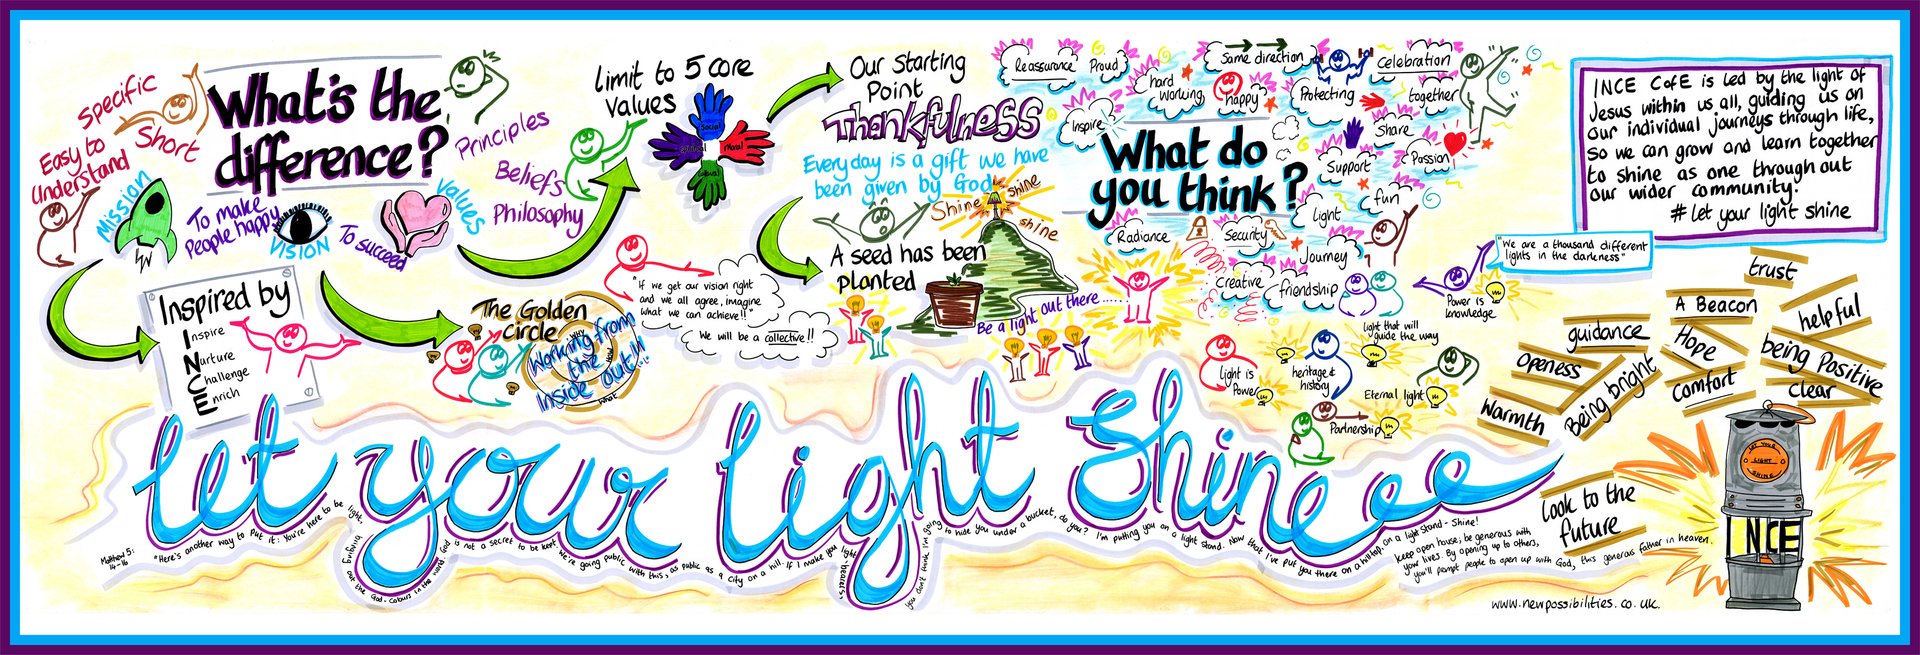 Specific
Short
Easy to
Understand
What's the
difference?
Mission
To make
People happy
VISION
To succeed
Values
Principles
Beliefs
Philosophy
Limit to 5 core
values
Social
Spiritual
Moral
Cultural
Our Starting
Point
Thankfulness
Everyday is a gift we have
been given by God
Shine
Shine
Shine
A seed has been
planted
Be a light out there......
Inspired by
Inspire
Nurture
Challenge
Enrich
The Golden
Circle
WHY
HOW
WHAT
Working from
the
Inside out!!!
"If we get our vision right
and we all agree, imagine
what we can achieve!!"
We will be a collective!!
What do
you think?
Reassurance
Proud
Same direction
Celebration
hard
working
happy
Protecting
together
Inspire
Share
Support
Passion
fun
Light
Radiance
Security
Journey
Creative
friendship
"We are a thousand different
lights in the darkness"
Power is
knowledge
Light that will
guide the way
Light is
Power
heritage &
history
Eternal light
Partnership
INCE CofE is led by the light of
Jesus within us all, guiding us on
our individual journeys through life,
so we can grow and learn together
to shine as one through out
our wider community.
# let your light shine
trust
A Beacon
helpful
guidance
Hope
being Positive
Openess
Being bright
Comfort
Clear
Warmth
Look to the
future
LET YOUR
LIGHT
SHINE
INCE
Let your light Shineeee
Matthew 5:
14-16
"Here's another way to put it: You're here to be light,
bringing
out the God-colours in the world. God
is not a secret to be kept. We're going public with this, as public as a city on a hill. If I make you light
-bearers,
you don't think I'm going
to hide you under a bucket, do you? I'm putting you on a light stand. Now that I've put you there on a hilltop, on a light stand - Shine!
Keep open house; be generous with
your lives. By opening up to others,
you'll prompt people to open up with God, this generous father in heaven.
www.newpossibilities.co.uk.